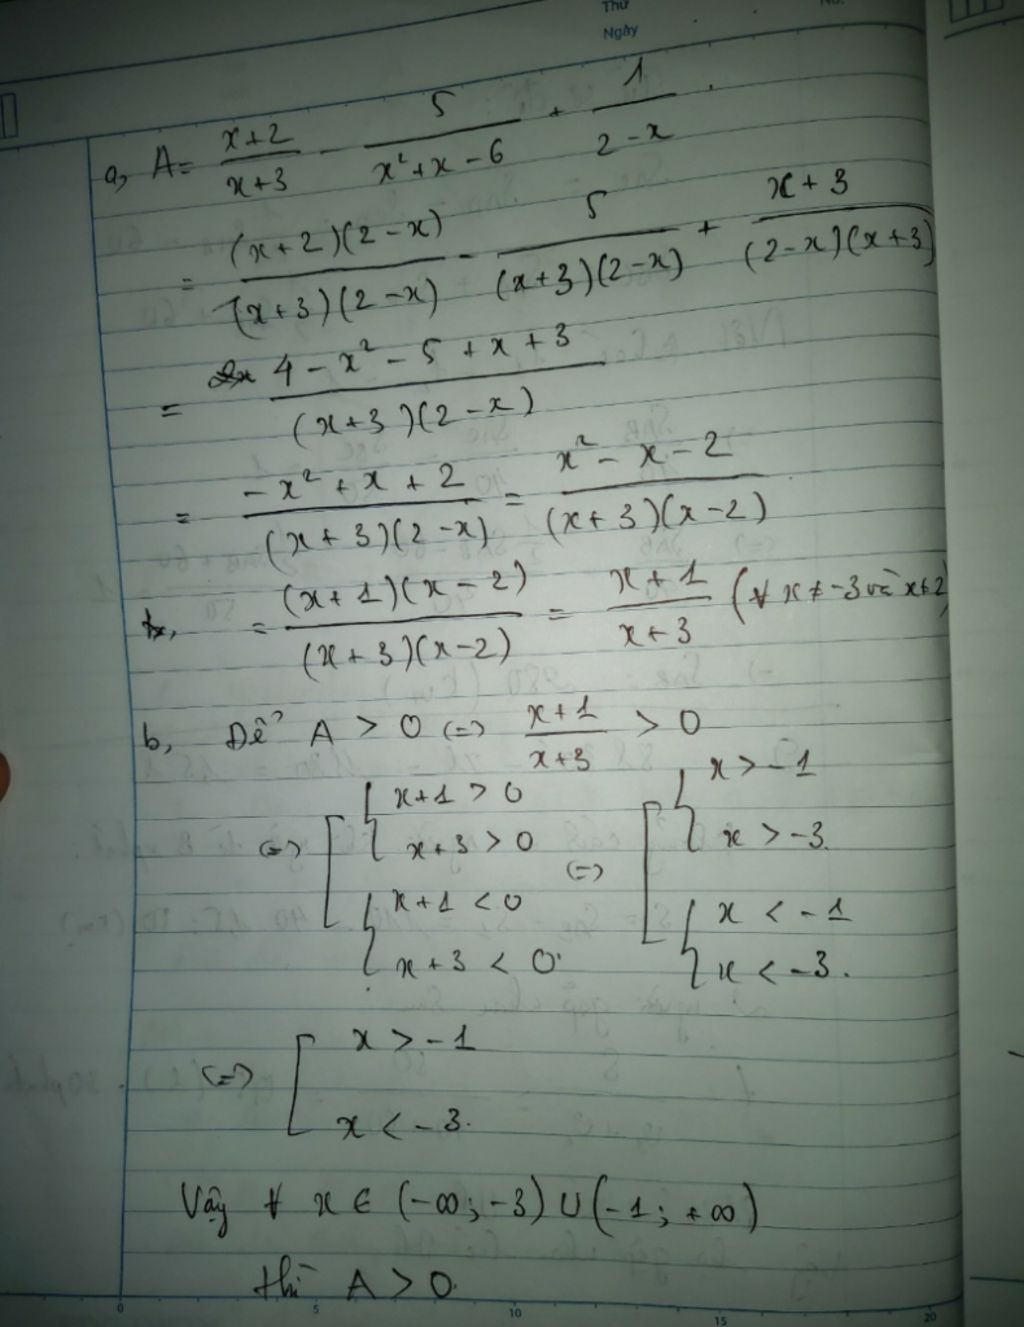 Thứ
Ngày
a, A = \frac{x+2}{x+3} - \frac{5}{x^2+x-6} + \frac{1}{2-x}.
= \frac{(x+2)(2-x)}{(x+3)(2-x)} - \frac{5}{(x+3)(2-x)} + \frac{x+3}{(2-x)(x+3)}
= \frac{4-x^2-5+x+3}{(x+3)(2-x)}
= \frac{-x^2+x+2}{(x+3)(2-x)} = \frac{x^2-x-2}{(x+3)(x-2)}
= \frac{(x+1)(x-2)}{(x+3)(x-2)} = \frac{x+1}{x+3} (∀ x ≠ -3 và x≠2)
b, Để A > 0 (=) \frac{x+1}{x+3} > 0
(=) [ { x+1 > 0 (=) [ { x > -1
x+3 > 0 x > -3.
{ x+1 < 0 { x < -1
x+3 < 0. x < -3.
(=) [ x > -1
x < -3.
Vậy ∀ x ∈ (-∞; -3) ∪ (-1; +∞)
thì A > 0.
0 5 10 15 20